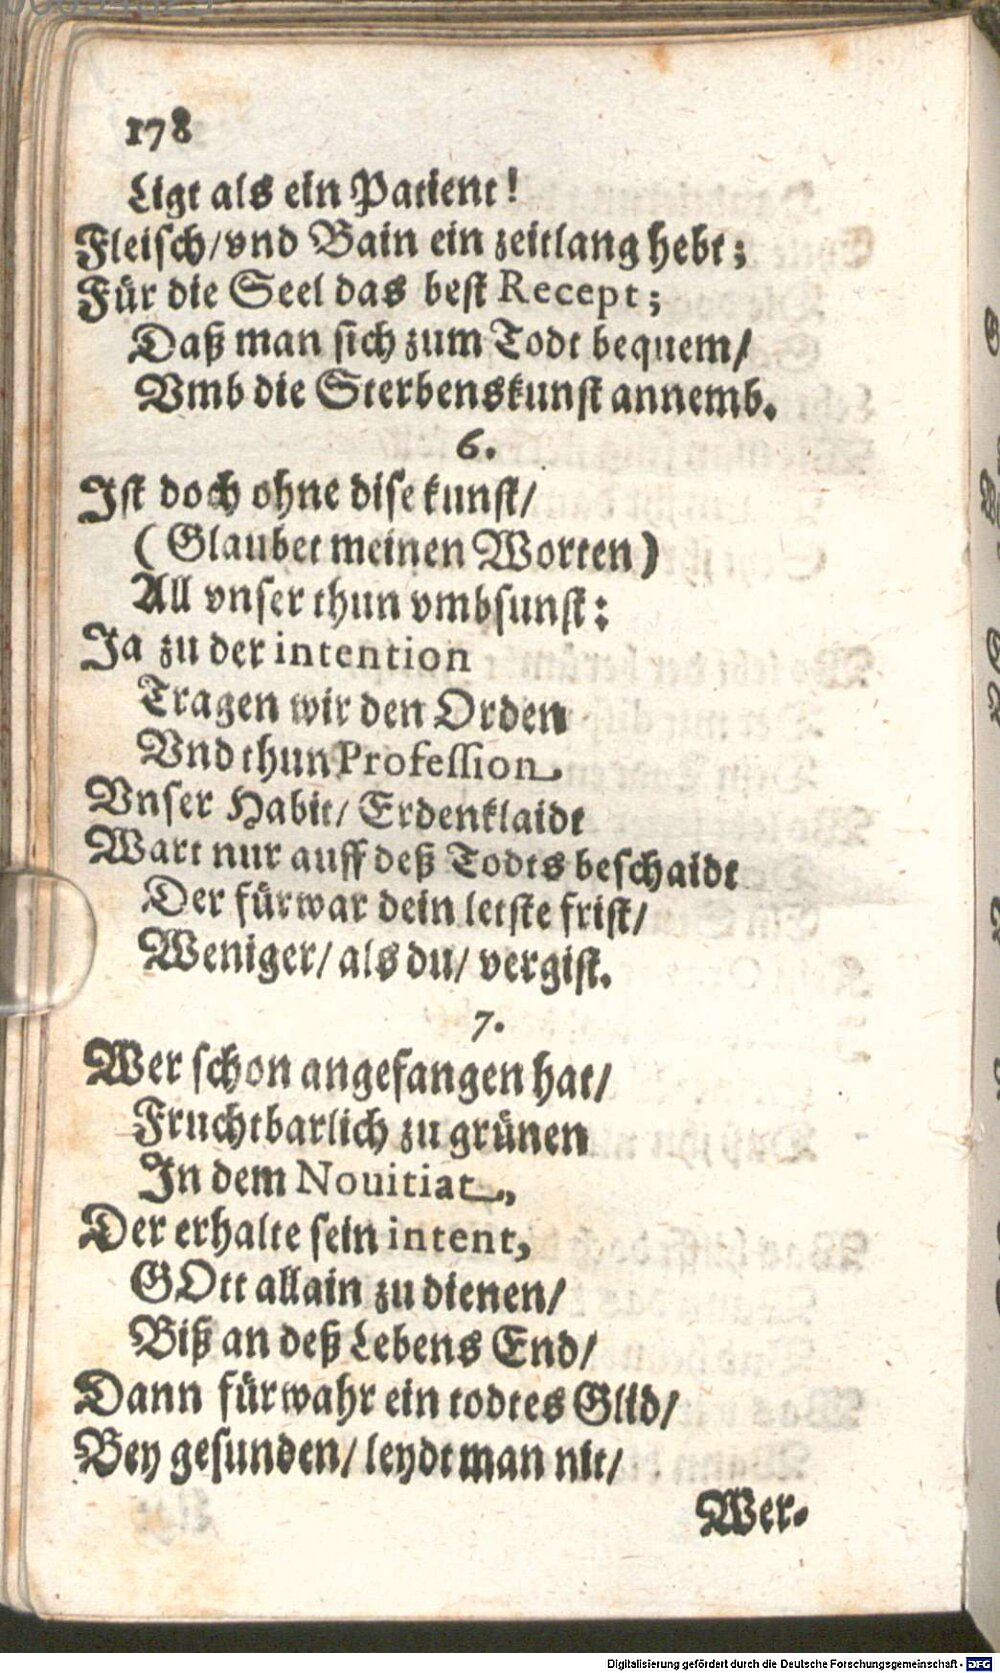 178
Ligt als ein Patient!
Fleisch/vnd Bain ein zeitlang hebt;
Für die Seel das best Recept;
Daß man sich zum Todt bequem/
Vmb die Sterbenskunst annemb.
6.
Ist doch ohne dise kunst/
(Glaubet meinen Worten)
All vnser thun vmbsunst:
Ja zu der intention
Tragen wir den Orden
Vnd thun Profession.
Vnser Habit/ Erdenklaidt
Wart nur auff deß Todts beschaidt
Der fürwar dein letste frist/
Weniger/ als du/ vergist.
7.
Wer schon angefangen hat/
Fruchtbarlich zu grünen
In dem Nouitiat,
Der erhalte sein intent,
GOtt allain zu dienen/
Biß an deß Lebens End/
Dann fürwahr ein todtes Glid/
Bey gesunden/ leydt man nit/
Wer-
Digitalisierung gefördert durch die Deutsche Forschungsgemeinschaft - DFG